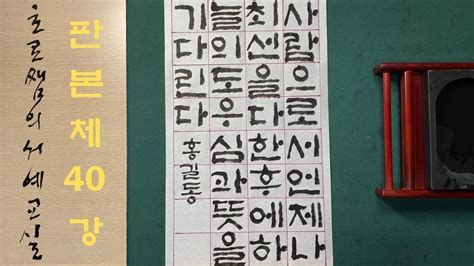 서예교실
판본체 40강
사람으로서언제나
최선을다한후에하
늘의도우심과뜻을
기다린다
홍길동